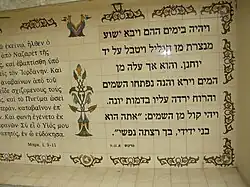 ἐκεῖνα, ἦλθεν ὁ
ἀπὸ Ναζαρὲτ τῆς
ἐβαπτίσθη ὑπὸ
Ἰορδάνην. Καὶ
ἀπὸ τοῦ
εἶδε σχιζομένους τοὺς
καὶ τὸ Πνεῦμα ὡσεὶ
καταβαῖνον ἐπ'
Καὶ φωνὴ ἐγένετο ἐκ
Σὺ εἶ ὁ Υἱός μου
ἐν ᾧ εὐδόκησα
Μαρκ. 1, 9-11
ויהיה בימים ההם ויבא ישוע
מנצרת מן הגליל ויטבל על יד
יוחנן. והוא אך עלה מן
המים וירא והנה נפתחו השמים
והרוח ירדה עליו בדמות יונה.
ויהי קול מן השמים: "אתה הוא
בני ידידי, בך רצתה נפשי".